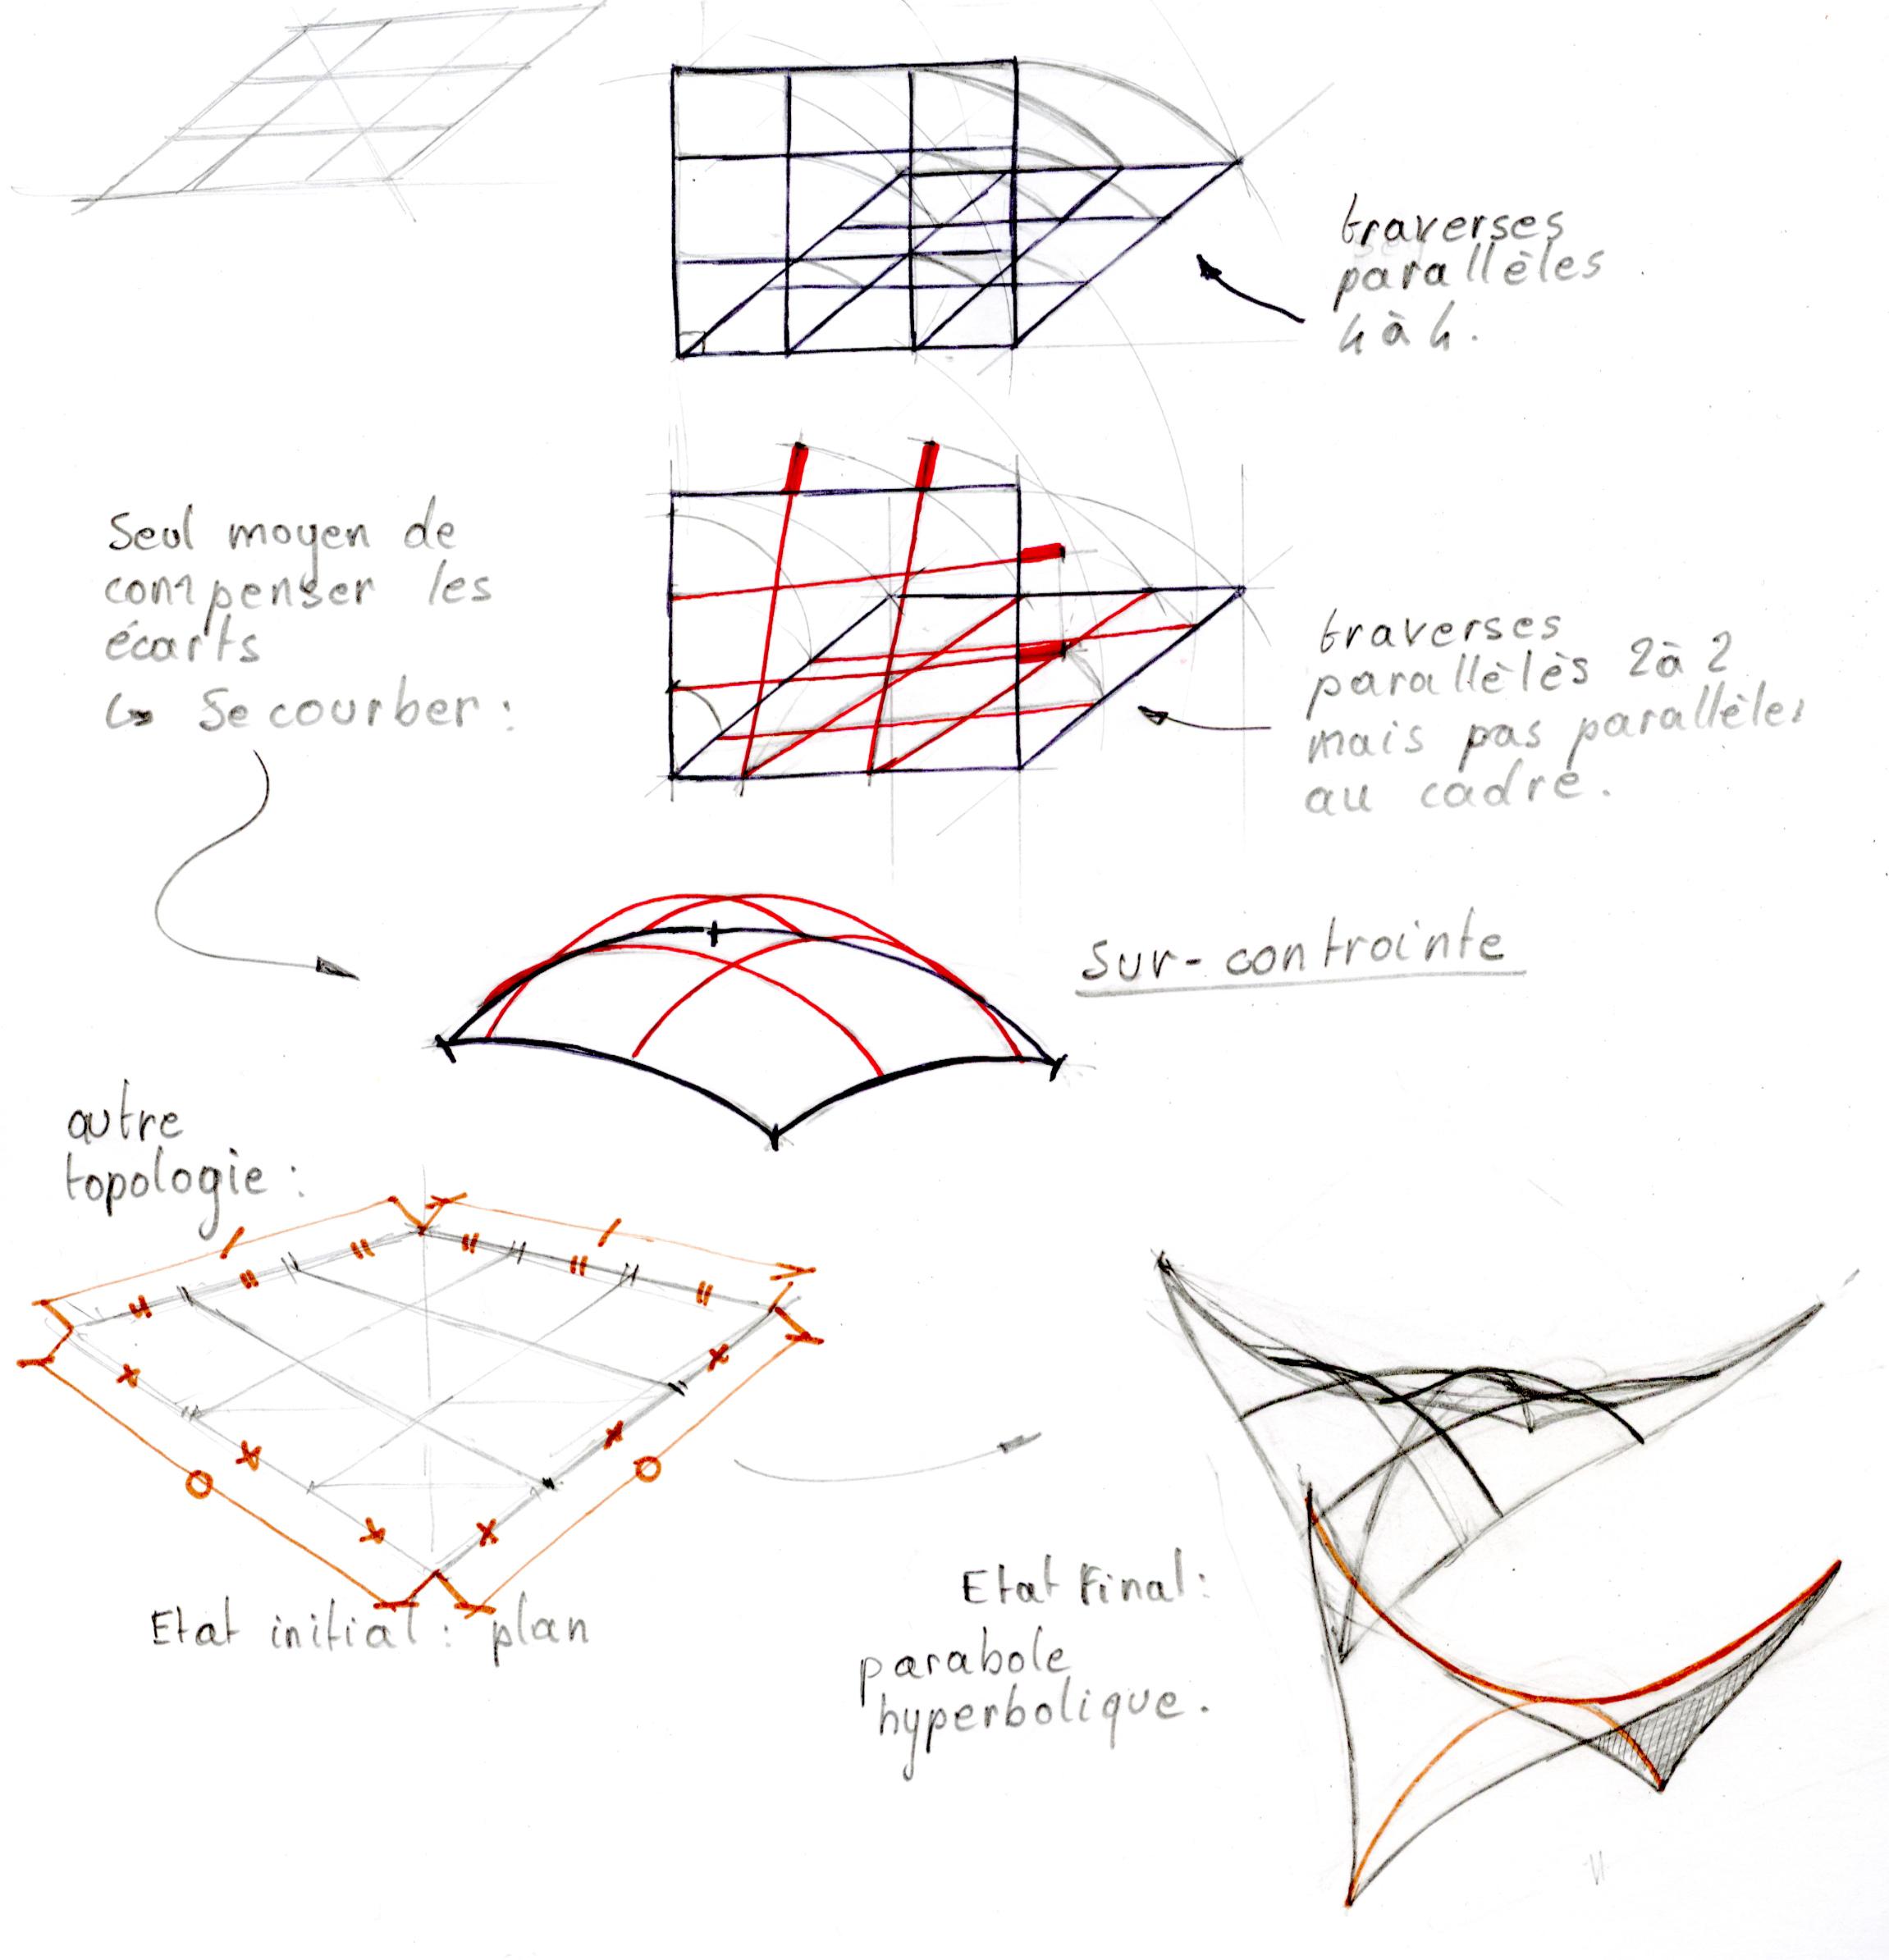 traverses
parallèles
4 à 4.
Seul moyen de
compenser les
écarts
↳ Se courber :
traverses
parallèlès 2 à 2
mais pas parallèles
au cadre.
sur-controinte
autre
topologie :
Etat initial : plan
Etat Final :
parabole
hyperbolique.